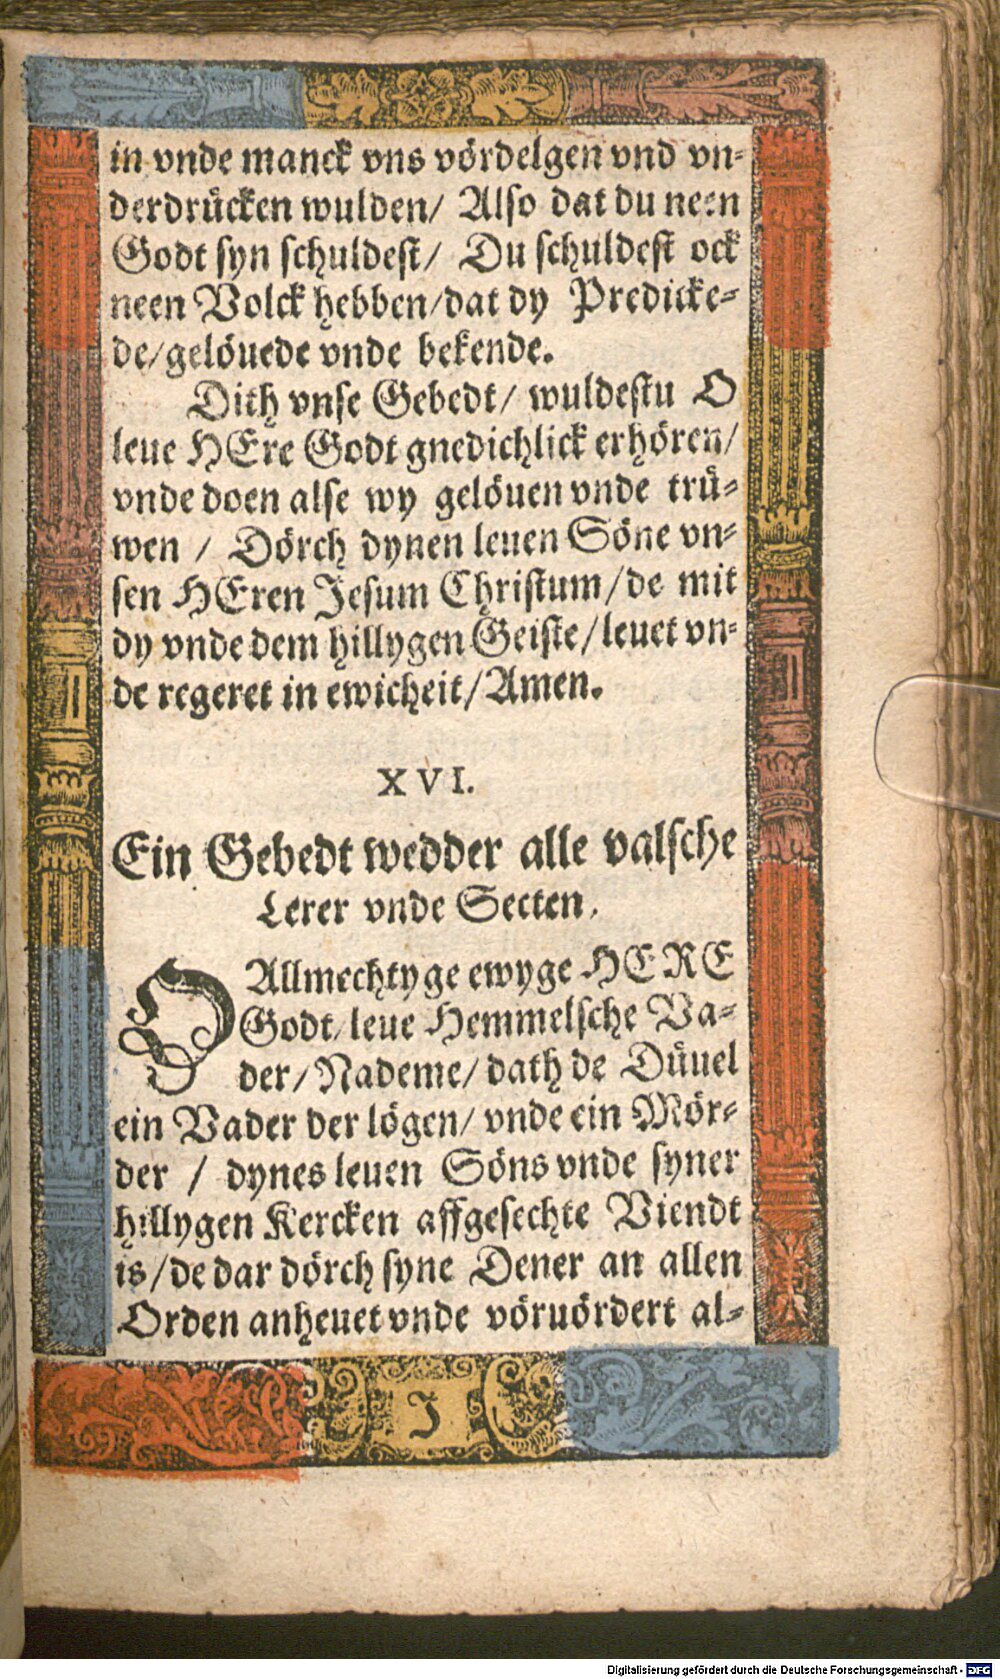 in vnde manck vns vördelgen vnd vn-
derdrücken wulden/ Also dat du neen
Godt syn schuldest/ Du schuldest ock
neen Volck hebben/dat dy Predicke-
de/gelöuede vnde bekende.
Dith vnse Gebedt/ wuldestu O
leue HEre Godt gnedichlick erhören/
vnde doen alse wy gelöuen vnde trü-
wen / Dörch dynen leuen Söne vn-
sen HEren Jesum Christum/de mit
dy vnde dem hillygen Geiste/leuet vn-
de regeret in ewicheit/Amen.
XVI.
Ein Gebedt wedder alle valsche
Lerer vnde Secten.
O Allmechtyge ewyge HERE
Godt/leue Hemmelsche Va-
der/Nademe/dath de Düuel
ein Vader der lögen/ vnde ein Mör-
der / dynes leuen Söns vnde syner
hillygen Kercken affgesechte Viendt
is/de dar dörch syne Dener an allen
Orden anheuet vnde vöruördert al-
J
Digitalisierung gefördert durch die Deutsche Forschungsgemeinschaft - DFG